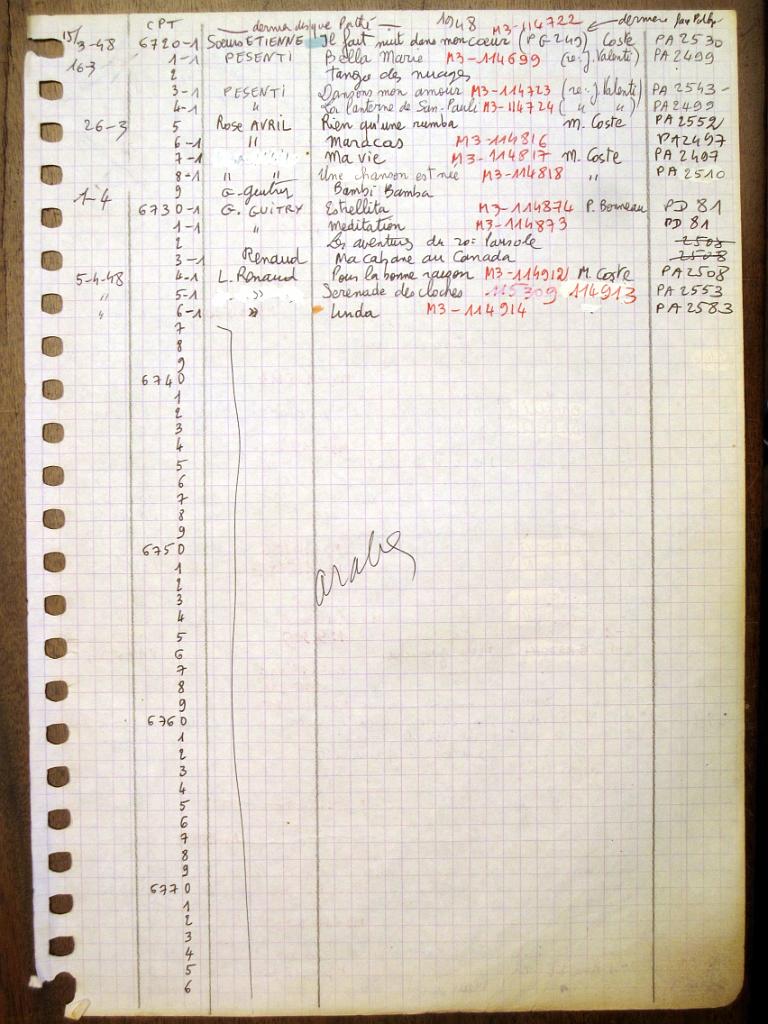 CPT dernier disque Pathé 1948 M3-114722 ← dernier par Pathé
15/3-48 6720-1 Soeurs ETIENNE Il fait nuit dans mon coeur (PG 249) Coste PA 2530
16-3 1-1 PESENTI Bella Marie M3-114699 (re: J. Valenti) PA 2499
2 Tango des nuages
3-1 PESENTI Dansons mon amour M3-114723 (re: J. Valenti) PA 2543-
4-1 " La lanterne de San-Pauli M3-114724 ( " " ) PA 2499
26-3 5 Rose AVRIL Rien qu'une rumba M. Coste PA 2552
6-1 " Maracas M3-114816 PA 2497
7-1 Ma vie M3-114817 M. Coste PA 2497
8-1 " " Une chanson est née M3-114818 " PA 2510
1-4 9 G. Guitry Bambi Bamba
6730-1 G. GUITRY Estrellita M3-114874 P. Bonneau PD 81
1-1 " Meditation M3-114873 PD 81
2 Les aventures du
3-1 Renaud Ma cabane au Canada 2508
5-4-48 4-1 L. Renaud Pour la bonne raison M3-114912 M. Coste PA 2508
" 5-1 " Serenade des cloches 115309 114913 PA 2553
" 6-1 " Linda M3-114914 PA 2583
7
8
9
6740
1
2
3
4
5
6
7
8
9
6750
1
2
3
4
arabe
5
6
7
8
9
6760
1
2
3
4
5
6
7
8
9
6770
1
2
3
4
5
6